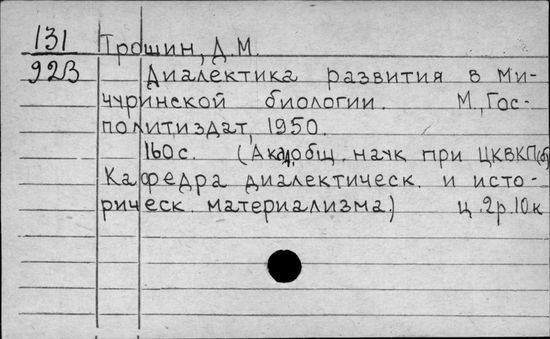 131 Трошин, Д.М.
923 Диалектика развития в Ми-
чуринской биологии. М., Гос-
политиздат, 1950.
160с. (Акад. общ. наук при ЦКВКП(б)
Кафедра диалектическ. и исто-
рическ. материализма.) ц. 2р. 10к